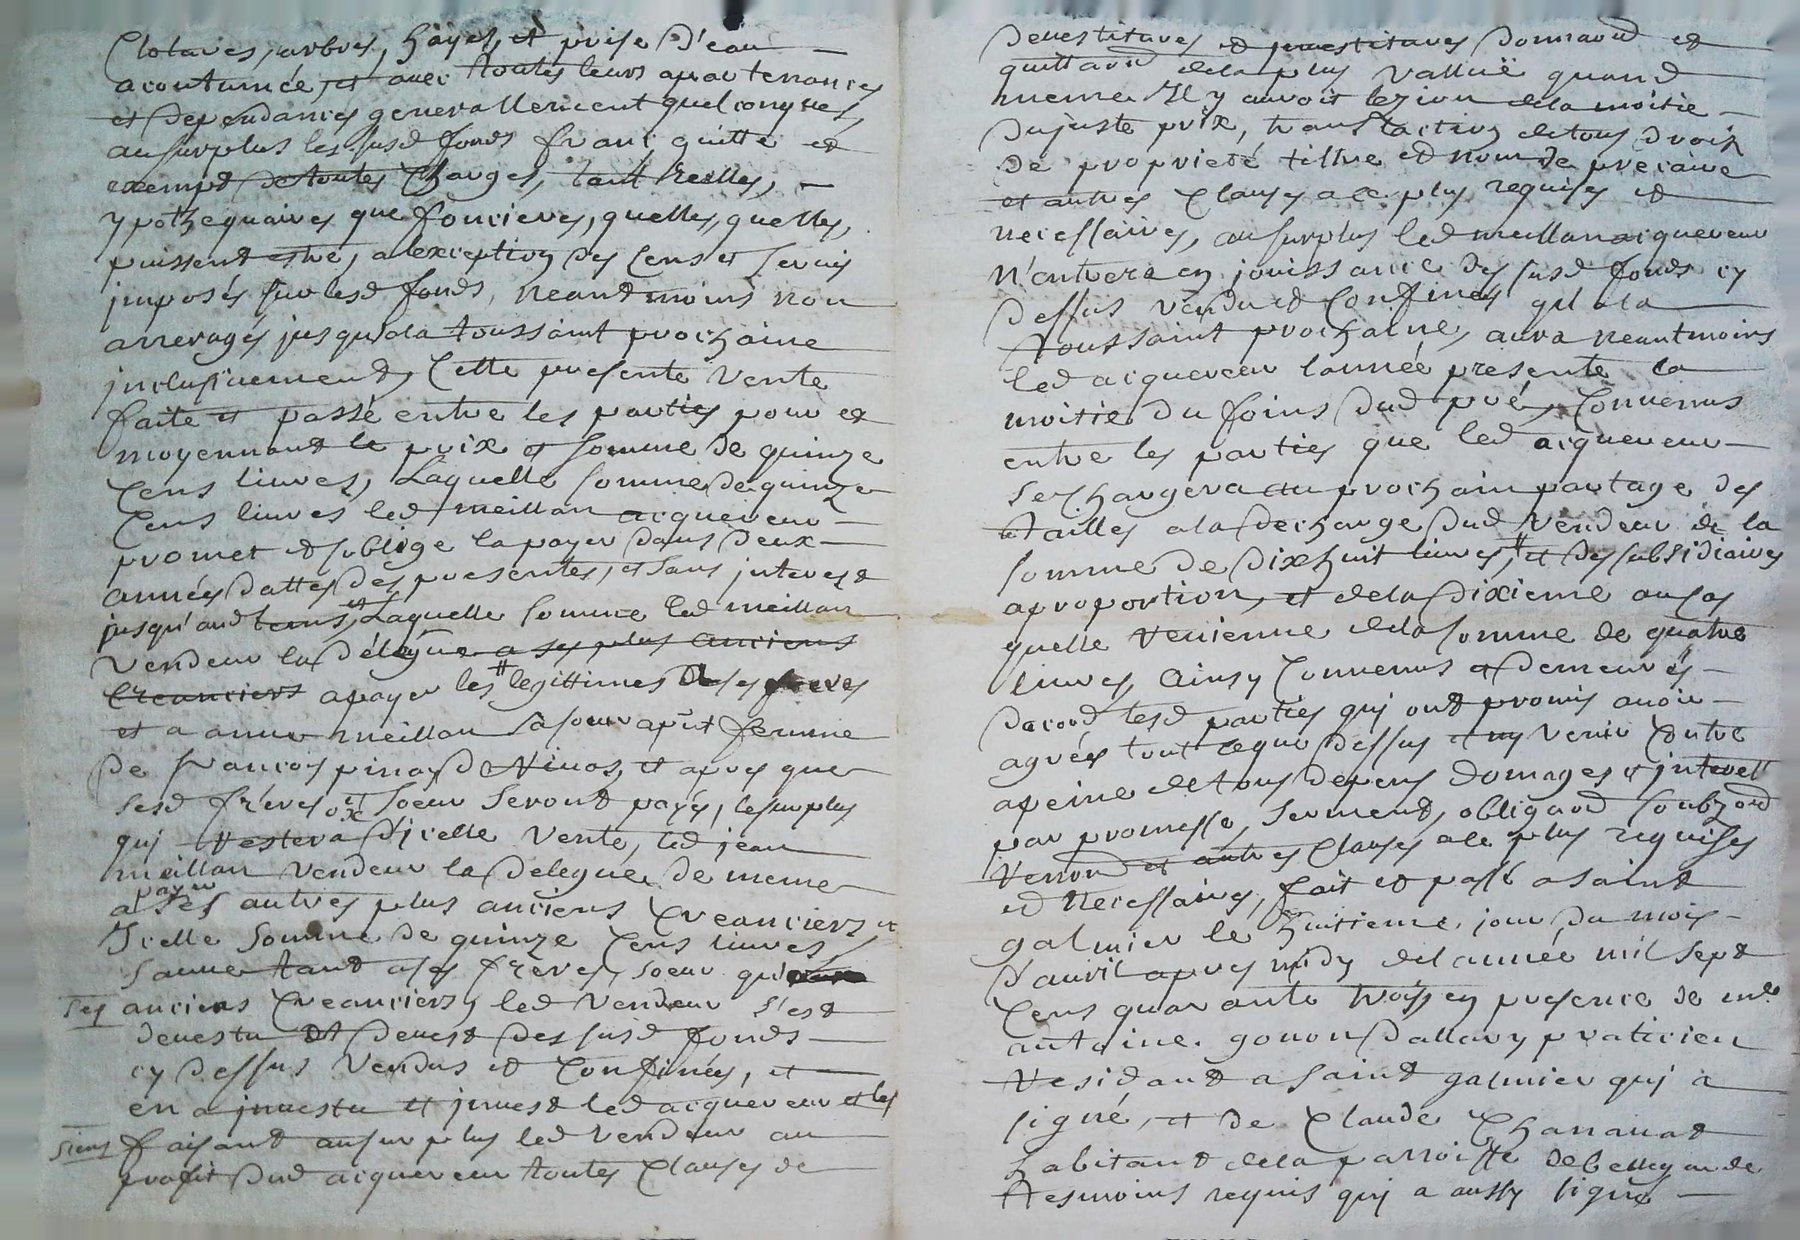 Clotures, arbres, hayes, et prise d'eau
acoutumée, et avec toutes leurs apartenances
et dependances generallement quelconques,
au surplus les susd fonds franc quitte et
exempt de toutes Charges, tant reelles,
ypothequaires que foncieres, quelles, quelles,
puissent estre, alexception des Cens et servis
imposés sur lesd fonds, neantmoins non
arreragés jusqu'ala toussaint prochaine
inclusivement, Cette presente Vente
faite et passé entre les parties pour et
moyennant le prix et somme de quinze
Cens livres, Laquelle somme de quinze
Cens livres led meillan acquereur
promet et s'oblige la payer dans deux
années dattes des presentes, et sans interest
jusqu'aud tems, et Laquelle somme led meillan
Vendeur la délegüe a ses plus anciens
Creanciers apayer les # legittimes a ses freres
et a anne meillan sa soeur aput femme
de francois pinay d
et apres que
sesd freres et soeur seront payés, le surplus
qui restera d'icelle Vente, led jean
meillan Vendeur la delegue de meme
a payer ses autres plus anciens Creanciers, et
Icelle somme de quinze Cens livres
sauve tant ases freres, soeur qu'
ses anciens Creanciers, led Vendeur s'est
devestu et devest des susd fonds
cy dessus Vendus et Confinés, et
en a investu et invest led acquereur et les
siens faisant au surplus led Vendeur au
profit dud acquereur toutes Clauses de
devestitures et investitures donnand et
quittand dela plus Valluë quand
meme Il y auroit lezion dela moitie
dujuste prix, translaction detous droits
de proprieté tiltre et nom de precaire
et autres Clauses a ce plus requises et
necessaires, au surplus led meillan acquereur
n'entrera en jouissance des susd fonds cy
dessus Vendu et Confinés qu'ala
toussaint prochaine, aura neantmoins
led acquereur lannée presente la
moitié du foins dud pré, Convenus
entre les parties que led acquereur
se chargera au prochain partage des
tailles ala decharge dud Vendeur de la
somme de dixhuit livres, # et des subsidiaires
aproportion, et dela dixieme aucas
quelle vienne dela somme de quatre
livres, Ainsy Convenus et demeurés
dacord lesd parties qui ont promis avoir
agrées tout ceque dessus et ny Venir Contre
apeine detous depens domages et interets
par promesse, serment, obligaõn soubzon
renon et autres Clauses ace plus requises
et necessaires, fait et passé a saint
galmier le huitieme jour du mois
d'avril apres midy del année mil sept
Cens quarante trois en presence de mre
antoine gonon dallary praticien
residant a saint galmier qui a
signé, et de Claude Chanavat
habitant dela parroisse debellegarde
tesmoins requis qui a aussy signé